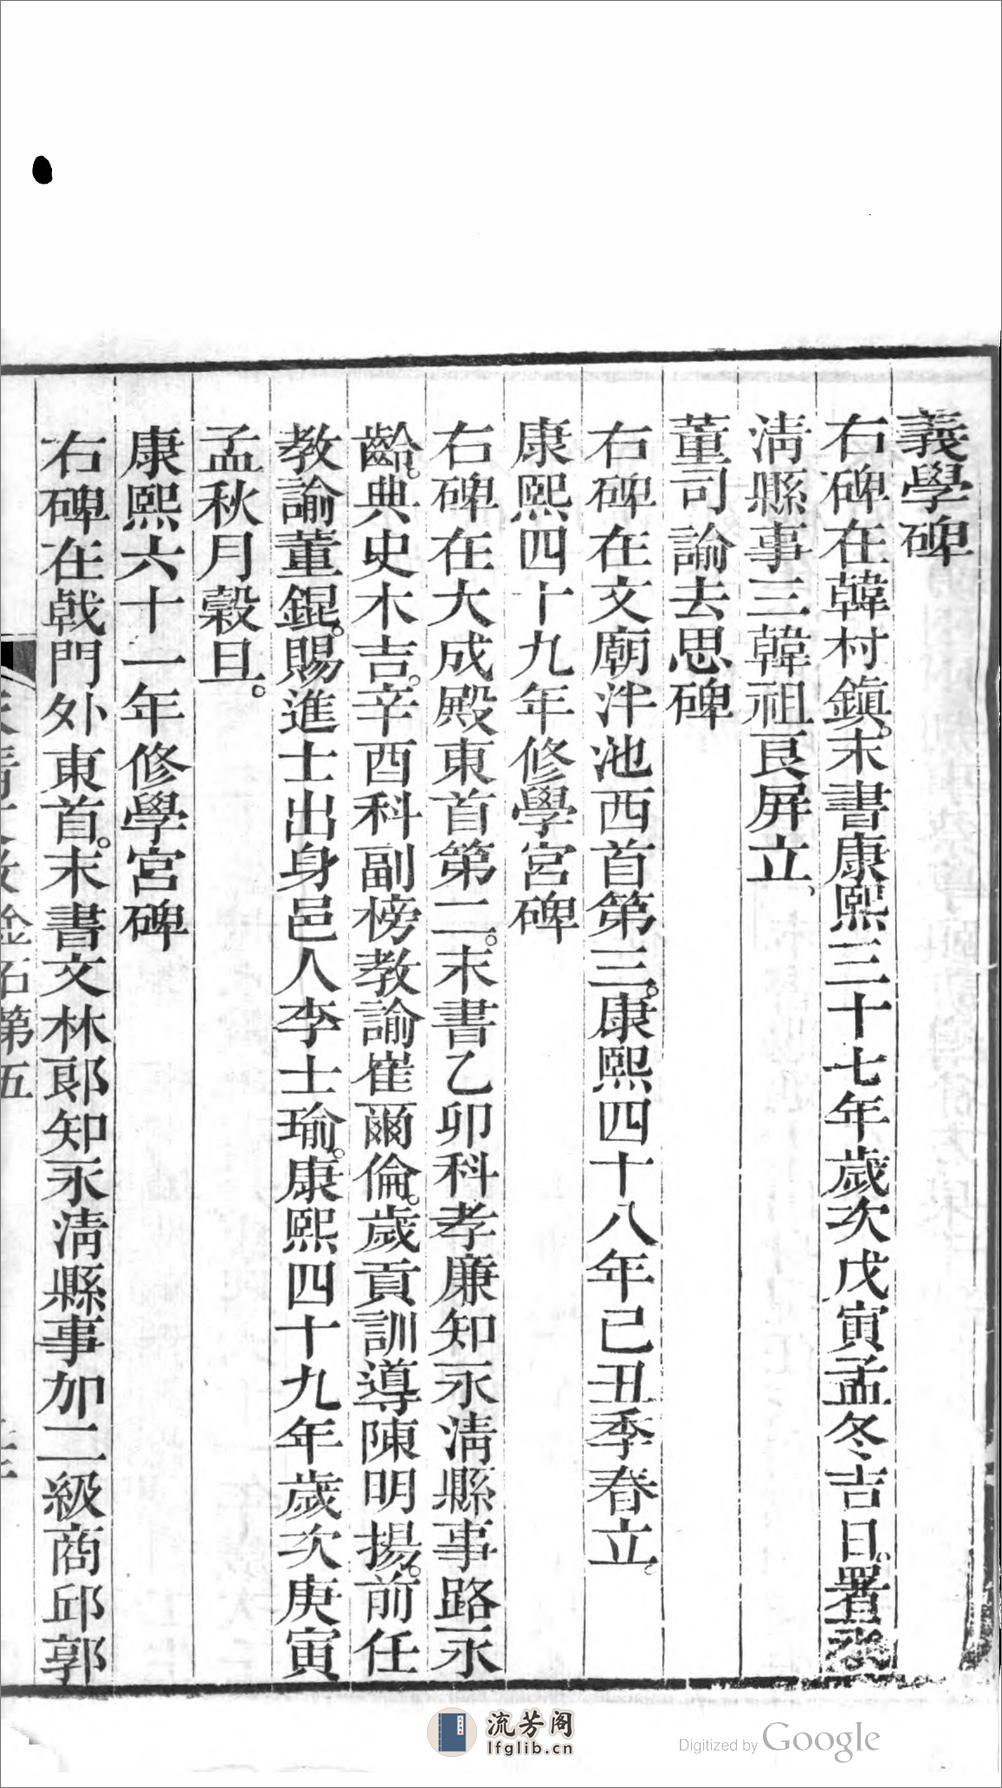 義學碑
右碑在韓村鎮。末書康熙三十七年歲次戊寅孟冬吉日。署永
淸縣事三韓祖良屏立。
董司諭去思碑
右碑在文廟泮池西首第三。康熙四十八年己丑季春立。
康熙四十九年修學宮碑
右碑在大成殿東首第二。末書乙卯科孝廉知永淸縣事路永
齡。典史木吉。辛酉科副榜教諭崔爾倫。歲貢訓導陳明揚。前任
教諭董錕。賜進士出身邑人李士瑜。康熙四十九年歲次庚寅
孟秋月穀旦。
康熙六十一年修學宮碑
右碑在戟門外東首。末書文林郎知永淸縣事加二級商邱郭
金石第五
流芳阁
lfglib.cn
Digitized by Google